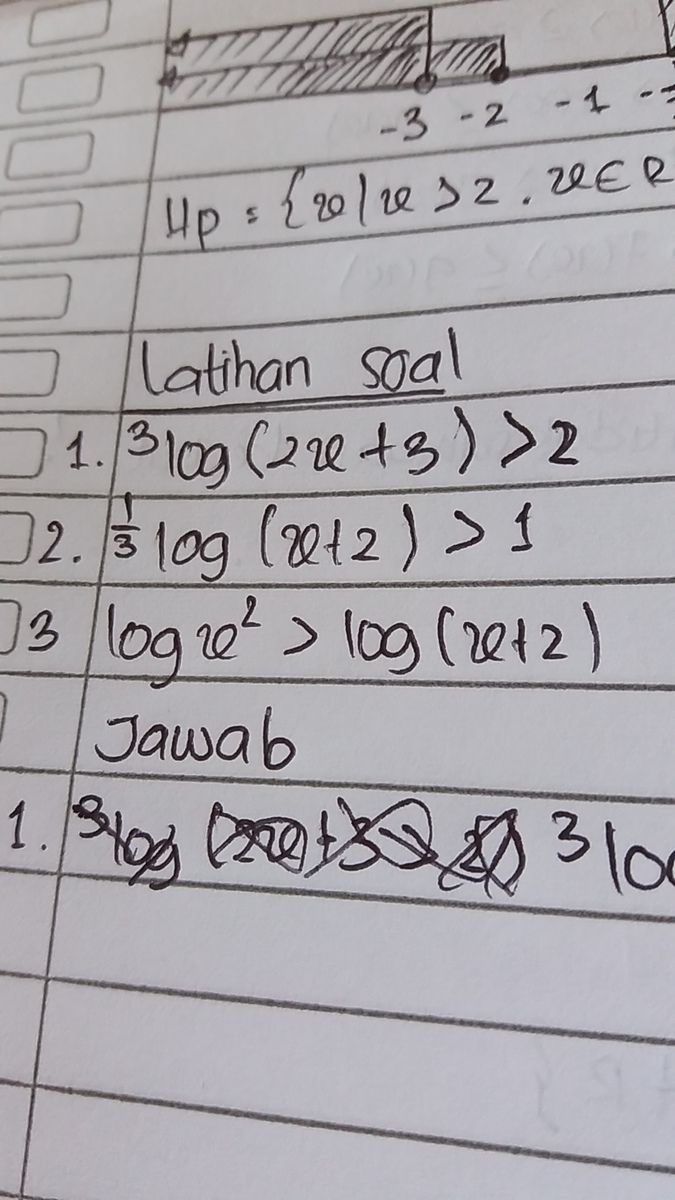 -3 -2 -1
Hp = {x | x > 2 . x ∈ R
Latihan soal
1. ³log (2x + 3) > 2
2. ⅓ log (x+2) > 1
3 log x² > log (x+2)
Jawab
1. ³log (2x+3 3 lo